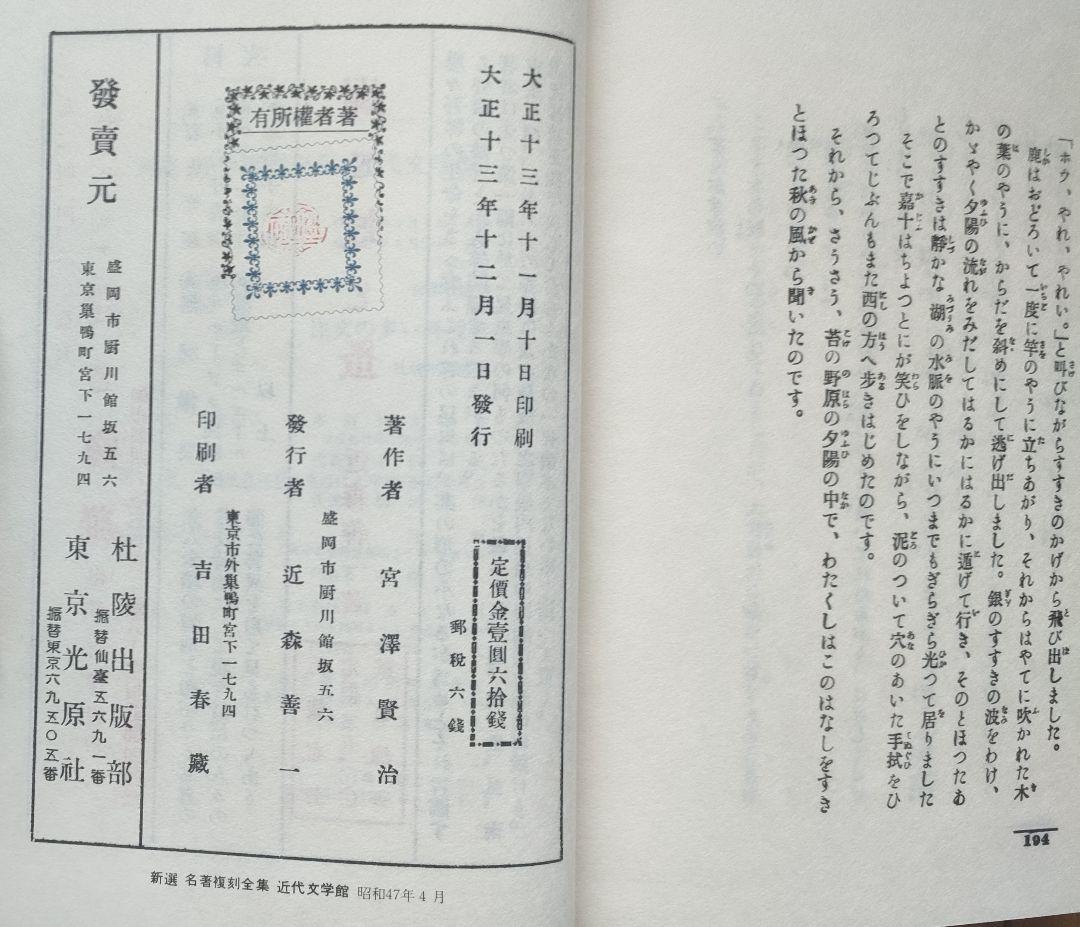 「ホウ、やれ、やれい。」と叫びながらすすきのかげから飛び出しました。
鹿はおどろいて一度に竿のやうに立ちあがり、それからはやてに吹かれた木
の葉のやうに、からだを斜めにして逃げ出しました。銀のすすきの波をわけ、
かゞやく夕陽の流れをみだしてはるかにはるかに遁げて行き、そのとほつたあ
とのすすきは靜かな湖の水脈のやうにいつまでもぎらぎら光つて居りました
そこで嘉十はちよつとにが笑ひをしながら、泥のついて穴のあいた手拭をひ
ろつてじぶんもまた西の方へ歩きはじめたのです。
それから、さうさう、苔の野原の夕陽の中で、わたくしはこのはなしをすき
とほつた秋の風から聞いたのです。
194
大正十三年十一月十日印刷
大正十三年十二月一日發行
定價金壹圓六拾錢
郵稅六錢
著者權所有
著作者 宮澤賢治
盛岡市厨川館坂五六
發行者 近森善一
東京市外巢鴨町宮下一七九四
印刷者 吉田春藏
發賣元
盛岡市厨川館坂五六
杜陵出版部
振替仙臺五六九一番
東京巢鴨町宮下一七九四
東京光原社
振替東京六九五〇五番
新選 名著複刻全集 近代文学館 昭和47年4月